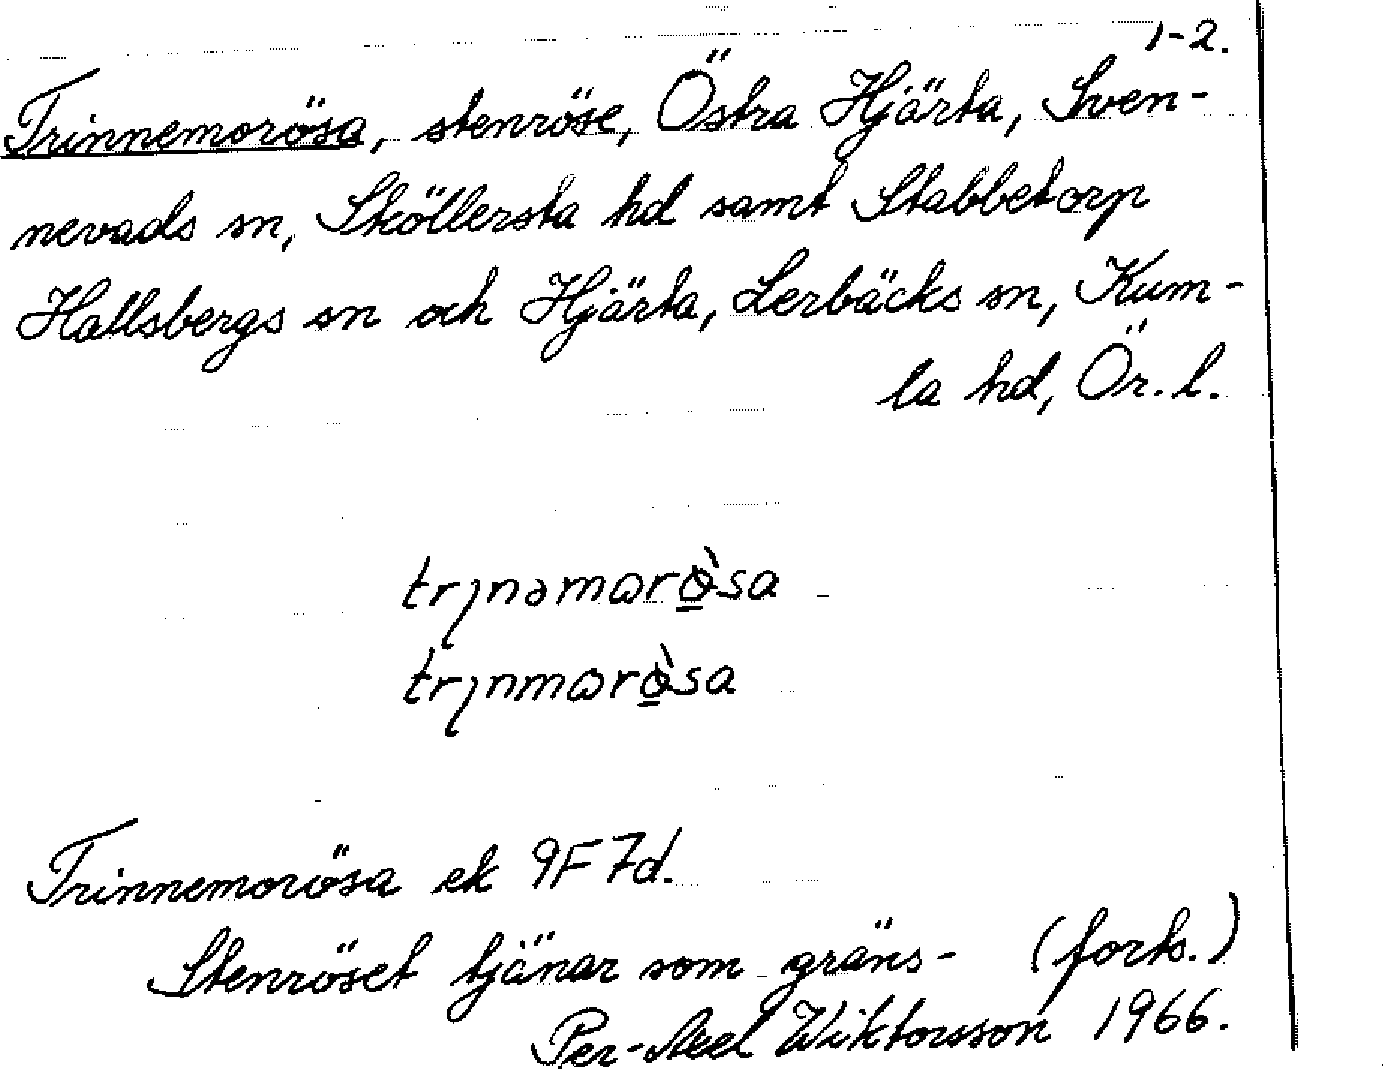 1-2.
Trinnemorösa, stenröse, Östra Hjärta, Sven-
nevads sn, Sköllersta hd samt Stabbetorp
Hallsbergs sn och Hjärta, Lerbäcks sn, Kum-
la hd, Ör. l.
trɪnəmɷrø̱̀sa
trɪnmɷrø̱̀sa
Trinnemorösa ek 9F 7d.
Stenröset tjänar som gräns- (forts.)
Per-Axel Wiktorsson 1966.